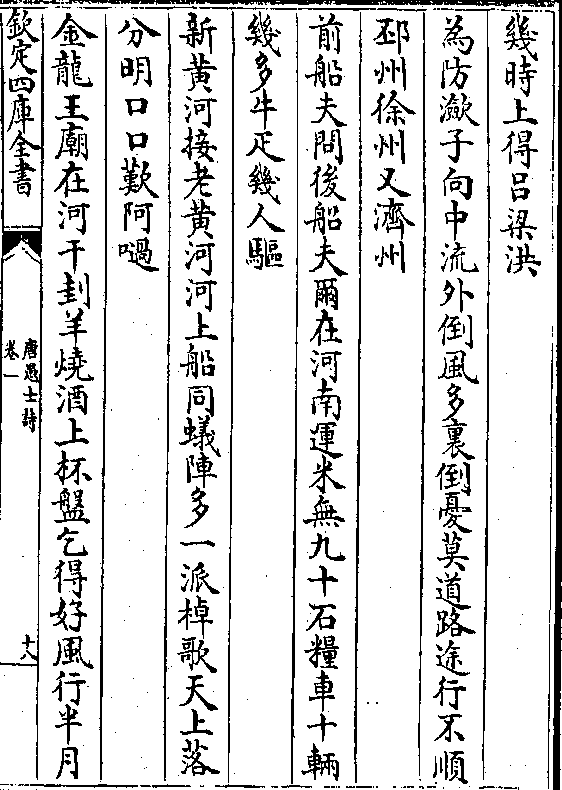 幾時上得吕梁洪
為防漵子向中流外倒風多裏倒憂莫道路途行不順
邳州徐州又濟州
前船夫問後船夫爾在河南運米無九十石糧車十輛
幾多牛疋幾人驅
新黄河接老黄河河上船同蟻陣多一派棹歌天上落
分明口口歎阿㗻
金龍王廟在河干刲羊燒酒上杯盤乞得好風行半月
欽定四庫全書
唐愚士詩
卷一
十八